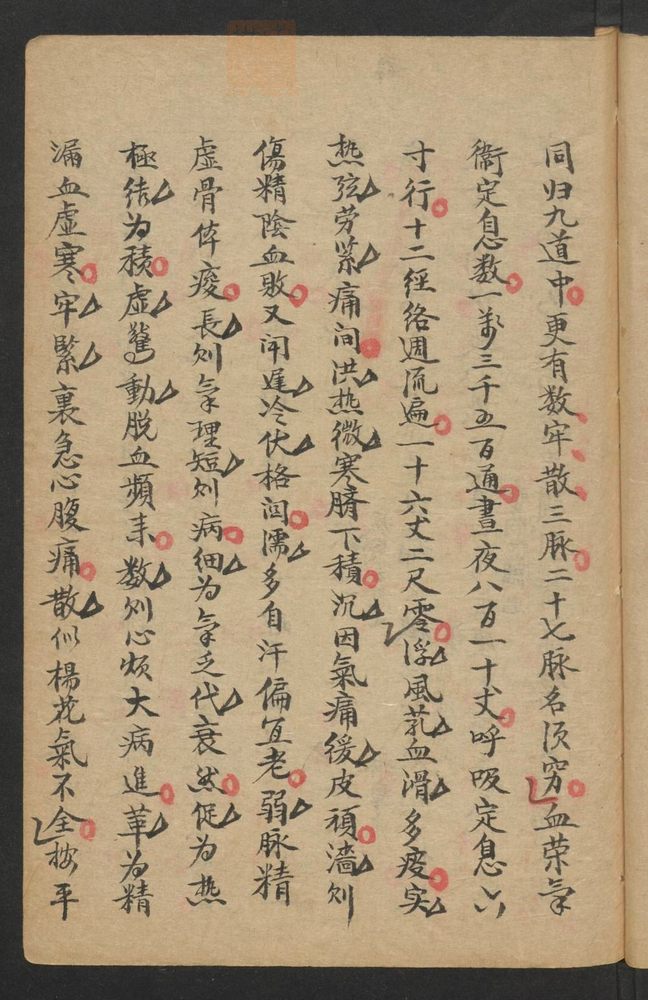 同归九道中更有数牢散三脉二十七脉名须穷血荣氣
衞定息数一萬三千五百通晝夜八百一十丈呼吸定息六
寸行十二經絡週流遍一十六丈二尺零浮風芤血滑多痰实
热弦劳紧痛间洪热微寒臍下積沉因氣痛缓皮頑濇则
傷精陰血敗又闻遲冷伏格闷濡多自汗偏宜老弱脉精
虚骨体痠長则氣理短则病细为氣乏代衰然促为热
極结为積虚驚動脱血頻来数则心烦大病進革为精
漏血虚寒牢緊裏急心腹痛散似楊花氣不全按平